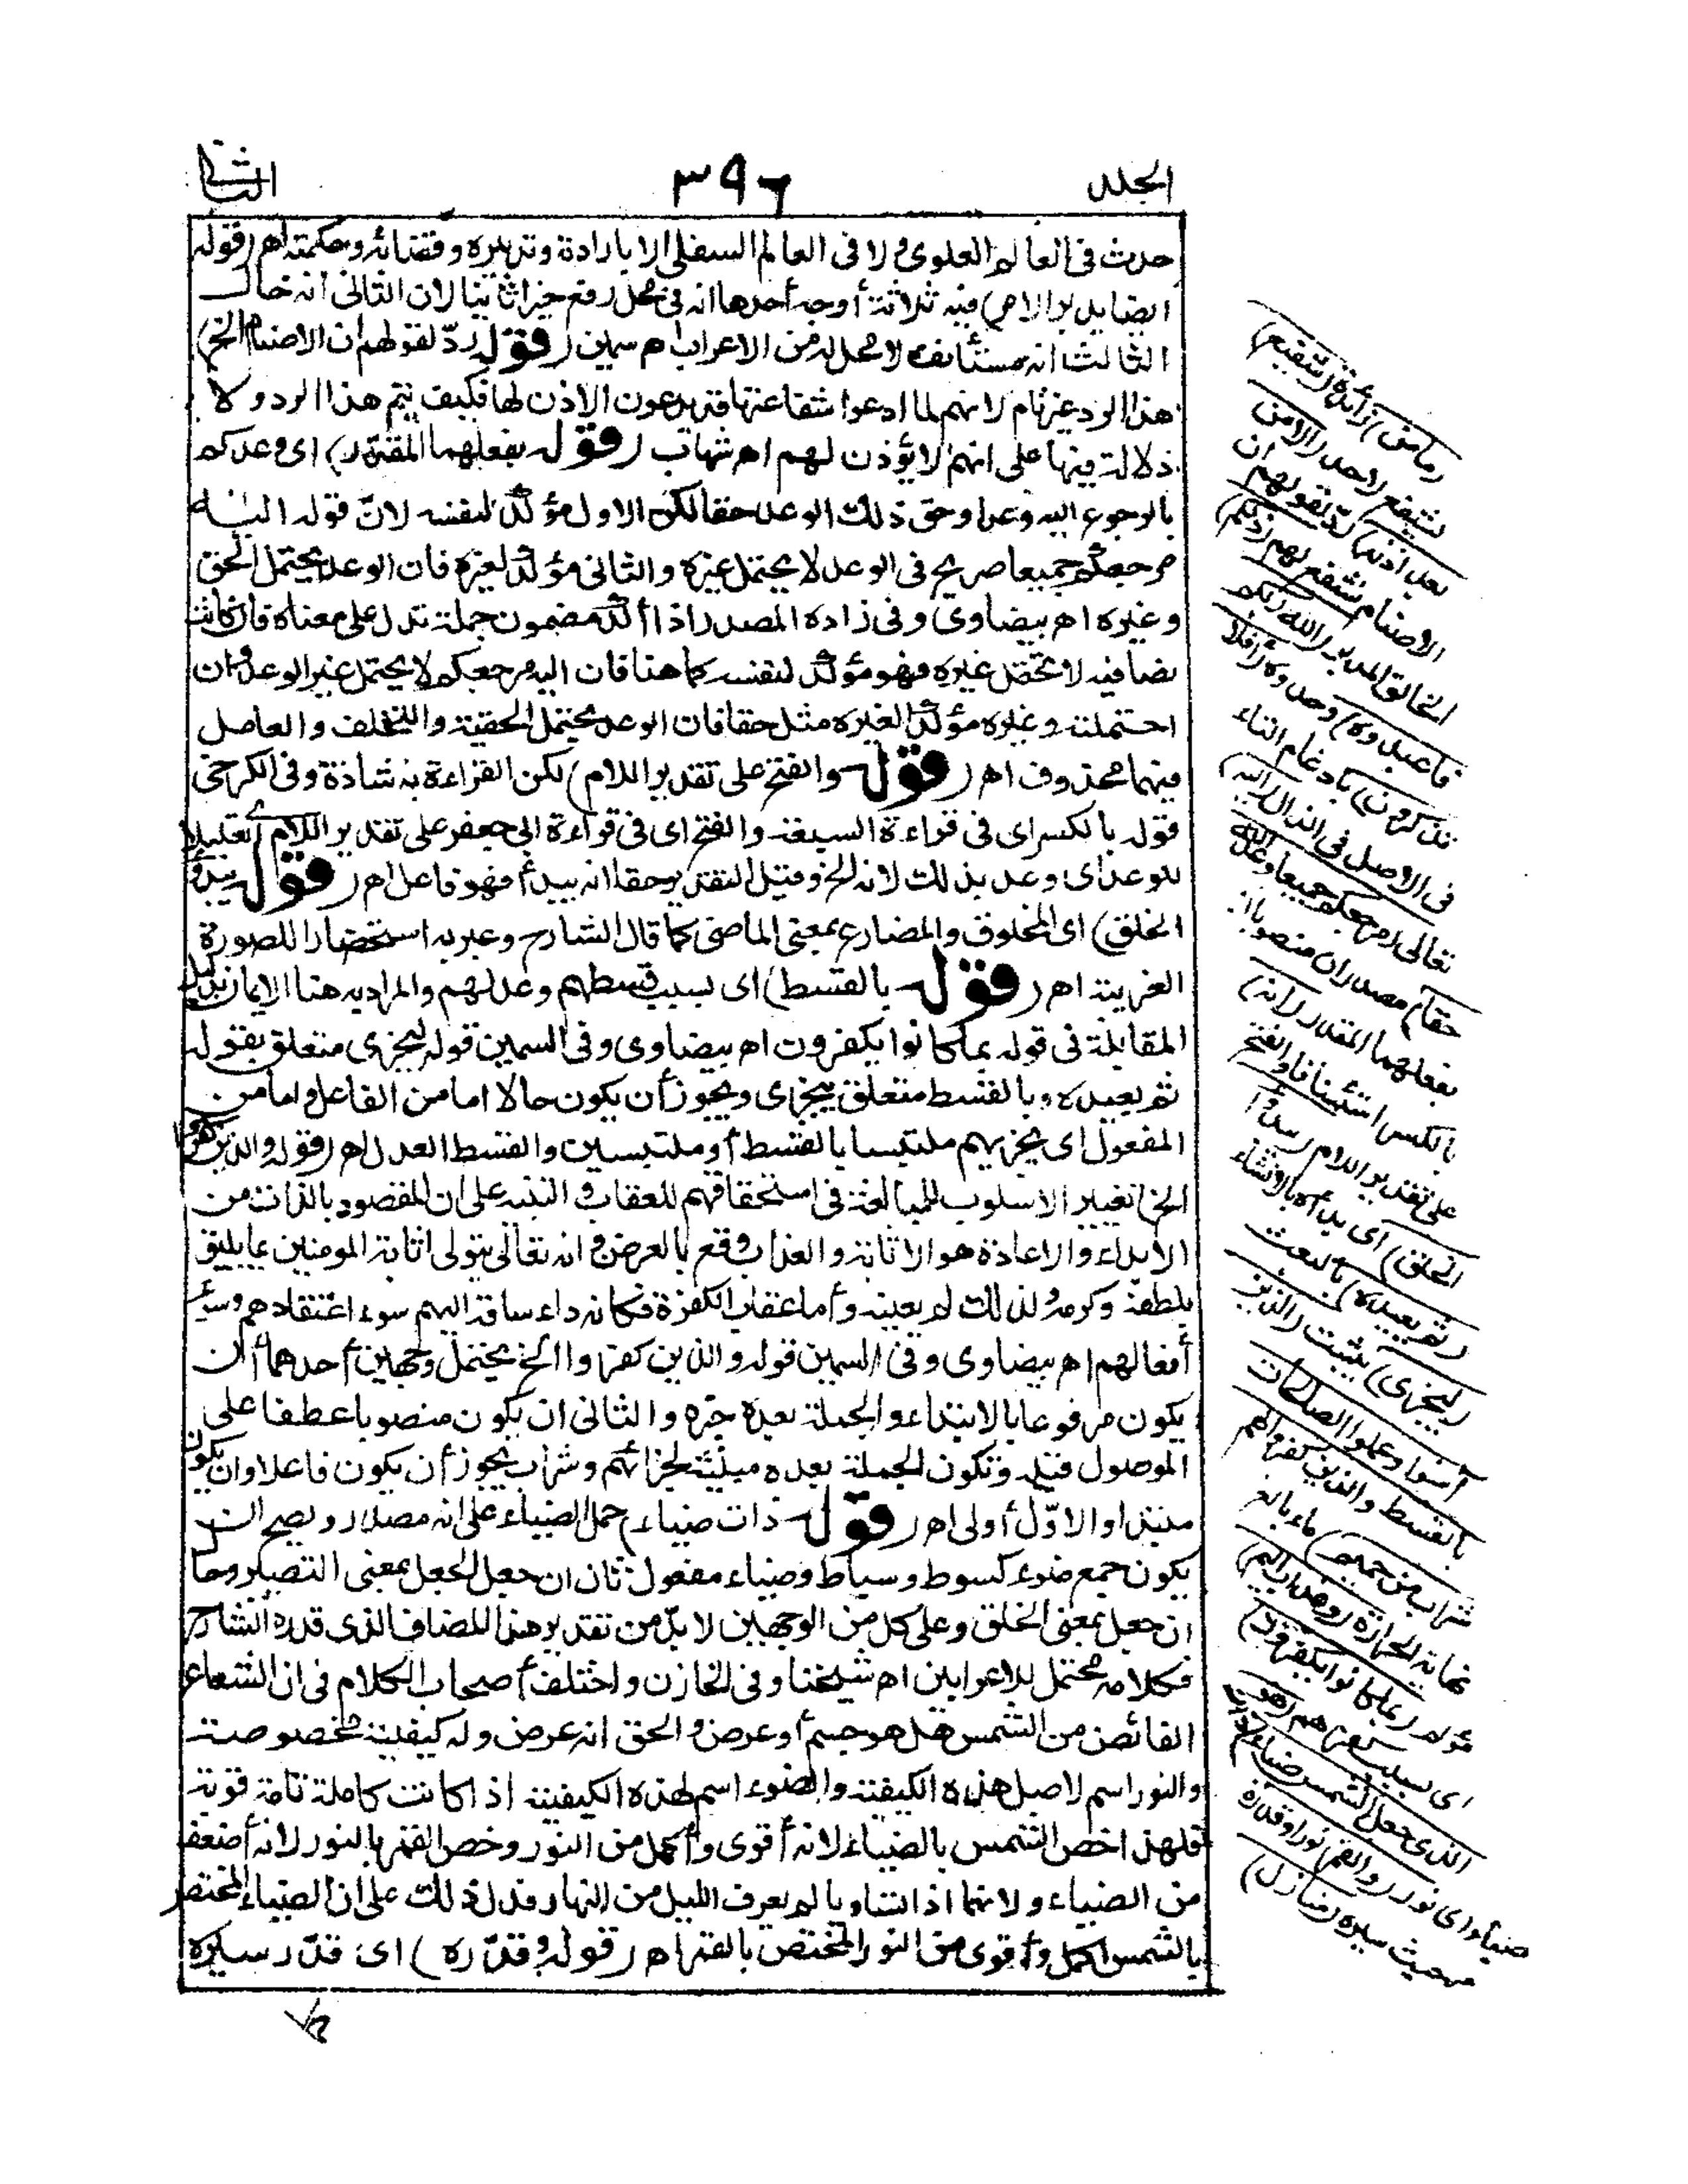 الجلد
٣٩٦
الثانى
حدث فى العالم العلوى ولا فى العالم السفلى الا بارادته وتدبيره وقضائه وحكمته اهـ (قوله
ايضا يدبر الامر) فيه ثلاثة أوجه أحدها انه فى محل رفع خبرا ثانيا لان الثانى أنه حال
الثالث انه مستأنف لا محل له من الاعراب اهـ سمين (قوله رد لقولهم ان الاصنام الخ)
هذا الرد غير تام لانهم لما ادعوا شفاعتها قد يدعون الاذن لها فكيف يتم هذا الرد ولا
دلالة فيها على انهم لا يؤذن لهم اهـ شهاب (قوله بفعلهما المقدر) اى وعدكم
بالرجوع اليه وعدا وحق ذلك الوعد حقا لكن الاول مؤكد لنفسه لانّ قوله اليه
مرجعكم جميعا صريح فى الوعد لا يحتمل غيره والثانى مؤكد لغيره فان الوعد يحتمل الحق
وغيره اهـ بيضاوى وفى زاده المصدر اذا أكد مضمون جملة تدل على معناه فان كانت
نصا فيه لا تحتمل غيره فهو مؤكد لنفسه كما هنا فان اليه مرجعكم لا يحتمل غير الوعد وان
احتملته وغيره مؤكدا لغيره مثل حقا فان الوعد يحتمل الحقية والتخلف والعامل
فيهما محذوف اهـ (قوله والفتح على تقدير اللام) لكن القراءة به شاذة وفى الكرخى
قوله بالكسر اى فى قراءة السبعة والفتح اى فى قراءة ابى جعفر على تقدير اللام تعليلا
للوعد اى وعد بذلك لانه الخ وقيل التقدير حقا انه يبدأ فهو فاعل اهـ (قوله يبدؤ
الخلق) اى المخلوق والمضارع بمعنى الماضى كما قال الشارح وعبر به استحضارا للصورة
الغريبة اهـ (قوله بالقسط) اى بسبب قسطهم وعدلهم والمراد به هنا الايمان بدليل
المقابلة فى قوله بما كانوا يكفرون اهـ بيضاوى وفى السمين قوله ليجزى متعلق بقوله
ثم يعيده وبالقسط متعلق بيجزى ويجوز أن يكون حالا اما من الفاعل واما من
المفعول اى يجزيهم ملتبسا بالقسط أو ملتبسين والقسط العدل اهـ (قوله والذين كفروا
الخ) تغيير الاسلوب للمبالغة فى استحقاقهم للعقاب والتنبيه على ان المقصود بالذات من
الابداء والاعادة هو الاثابة والعذاب وقع بالعرض وانه تعالى يتولى اثابة المومنين بما يليق
بلطفه وكرمه ولذلك لم يعينه وأما عقاب الكفرة فكانه داء ساقه اليهم سوء اعتقادهم وسوء
أفعالهم اهـ بيضاوى وفى السمين قوله والذين كفروا الخ يحتمل وجهين أحدهما أن
يكون مرفوعا بالابتداء والجملة بعده خبره والثانى ان يكون منصوبا عطفا على
الموصول قبله وتكون الجملة بعده مبينة لجزائهم وشراب يجوز أن يكون فاعلا وان يكون
مبتدا والاوّل أولى اهـ (قوله ذات ضياء) حمل الضياء على انه مصدر ويصح ان
يكون جمع ضوء كسوط وسياط وضياء مفعول ثان ان جعل الجعل بمعنى التصيير وحال
ان جعل بمعنى الخلق وعلى كل من الوجهين لا بدّ من تقدير هذا المضاف الذى قدره الشارح
فكلامه محتمل للاعرابين اهـ شيخنا وفى الخازن واختلف أصحاب الكلام فى ان الشعاع
الفائض من الشمس هل هو جسم أو عرض والحق انه عرض وله كيفية مخصوصة
والنور اسم لاصل هذه الكيفية والضوء اسم لهذه الكيفية اذا كانت كاملة تامة قوية
فلهذا خص الشمس بالضياء لانه أقوى وأكمل من النور وخص القمر بالنور لانه أضعف
من الضياء ولانهما اذا تساويا لم يعرف الليل من النهار فدل ذلك على ان الضياء المختص
بالشمس اكمل وأقوى من النور المختص بالقمر اهـ (قوله وقدّره) اى قدّر سيره
(ما من) زائدة (شفيع)
يشفع لاحد (الا من
بعد اذنه) رد لقولهم ان
الاصنام تشفع لهم (ذلكم)
الخالق المدبر (الله ربكم
فاعبدوه) وحدوه (أفلا
تذكرون) بادغام التاء
فى الاصل فى الذال (اليه)
تعالى (مرجعكم جميعا وعد الله
حقا) مصدران منصوبان
بفعلهما المقدر (انه)
بالكسر استئنافا والفتح
على تقدير اللام (يبدؤا
الخلق) اى بدأه بالانشاء
(ثم يعيده) بالبعث
(ليجزى) يثيب (الذين
آمنوا وعملوا الصالحات
بالقسط والذين كفروا لهم
شراب من حميم) ماء بالغ
نهاية الحرارة (وعذاب اليم)
مؤلم (بما كانوا يكفرون)
اى بسبب كفرهم (هو
الذى جعل الشمس ضياء) ذات
ضياء اى نور (والقمر نورا وقدره)
من حيث سيره (منازل)